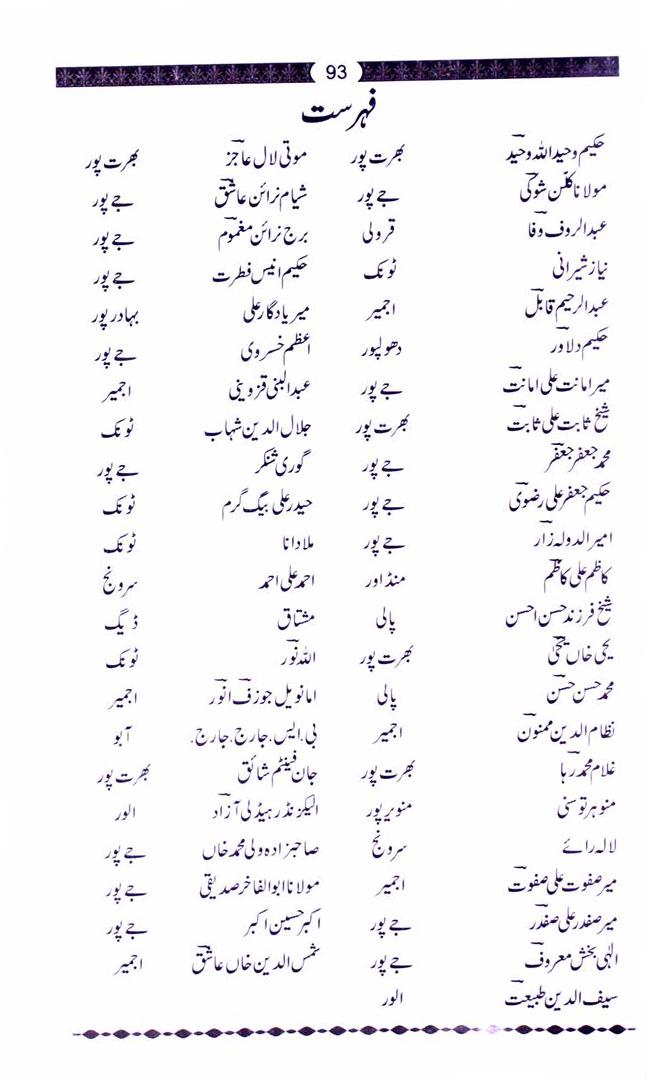 93
فہرست
حکیم وحید اللہ وحید بھرت پور موتی لال عاجز بھرت پور
مولانا کلّن شوکی جے پور شیام نرائن عاشق جے پور
عبدالروف وفا قرولی برج نرائن مغموم جے پور
نیاز شیرانی ٹونک حکیم انیس فطرت جے پور
عبدالرحیم قابل اجمیر میر یادگار علی بہادر پور
حکیم دلاور دھولپور اعظم خسروی جے پور
میر امانت علی امانت جے پور عبدالبنی قزوینی اجمیر
شیخ ثابت علی ثابت بھرت پور جلال الدین شہاب ٹونک
محمد جعفر جعفر جے پور گوری شنکر جے پور
حکیم جعفر علی رضوی جے پور حیدر علی بیگ گرم ٹونک
امیر الدولہ زار جے پور ملا دانا ٹونک
کاظم علی کاظم منڈاور احمد علی احمد سرونج
شیخ فرزند حسن احسن پالی مشتاق ڈیگ
یحیٰ خاں یحیٰ بھرت پور اللہ نور ٹونک
محمد حسن حسن پالی امانویل جوزف انور اجمیر
نظام الدین ممنون اجمیر بی.ایس.جارج.جارج. آبو
غلام محمد رہا بھرت پور جان فینٹم شائق بھرت پور
منوہر توسنی منوہر پور الیکزنڈر ہیڈلی آزاد الور
لالہ رائے سرونج صاحبزادہ ولی محمد خاں جے پور
میر صفوت علی صفوت اجمیر مولانا ابوالفاخر صدیقی جے پور
میر صفدر علی صفدر جے پور اکبر حسین اکبر جے پور
الٰہی بخش معروف جے پور شمس الدین خاں عاشق اجمیر
سیف الدین طبیعت الور